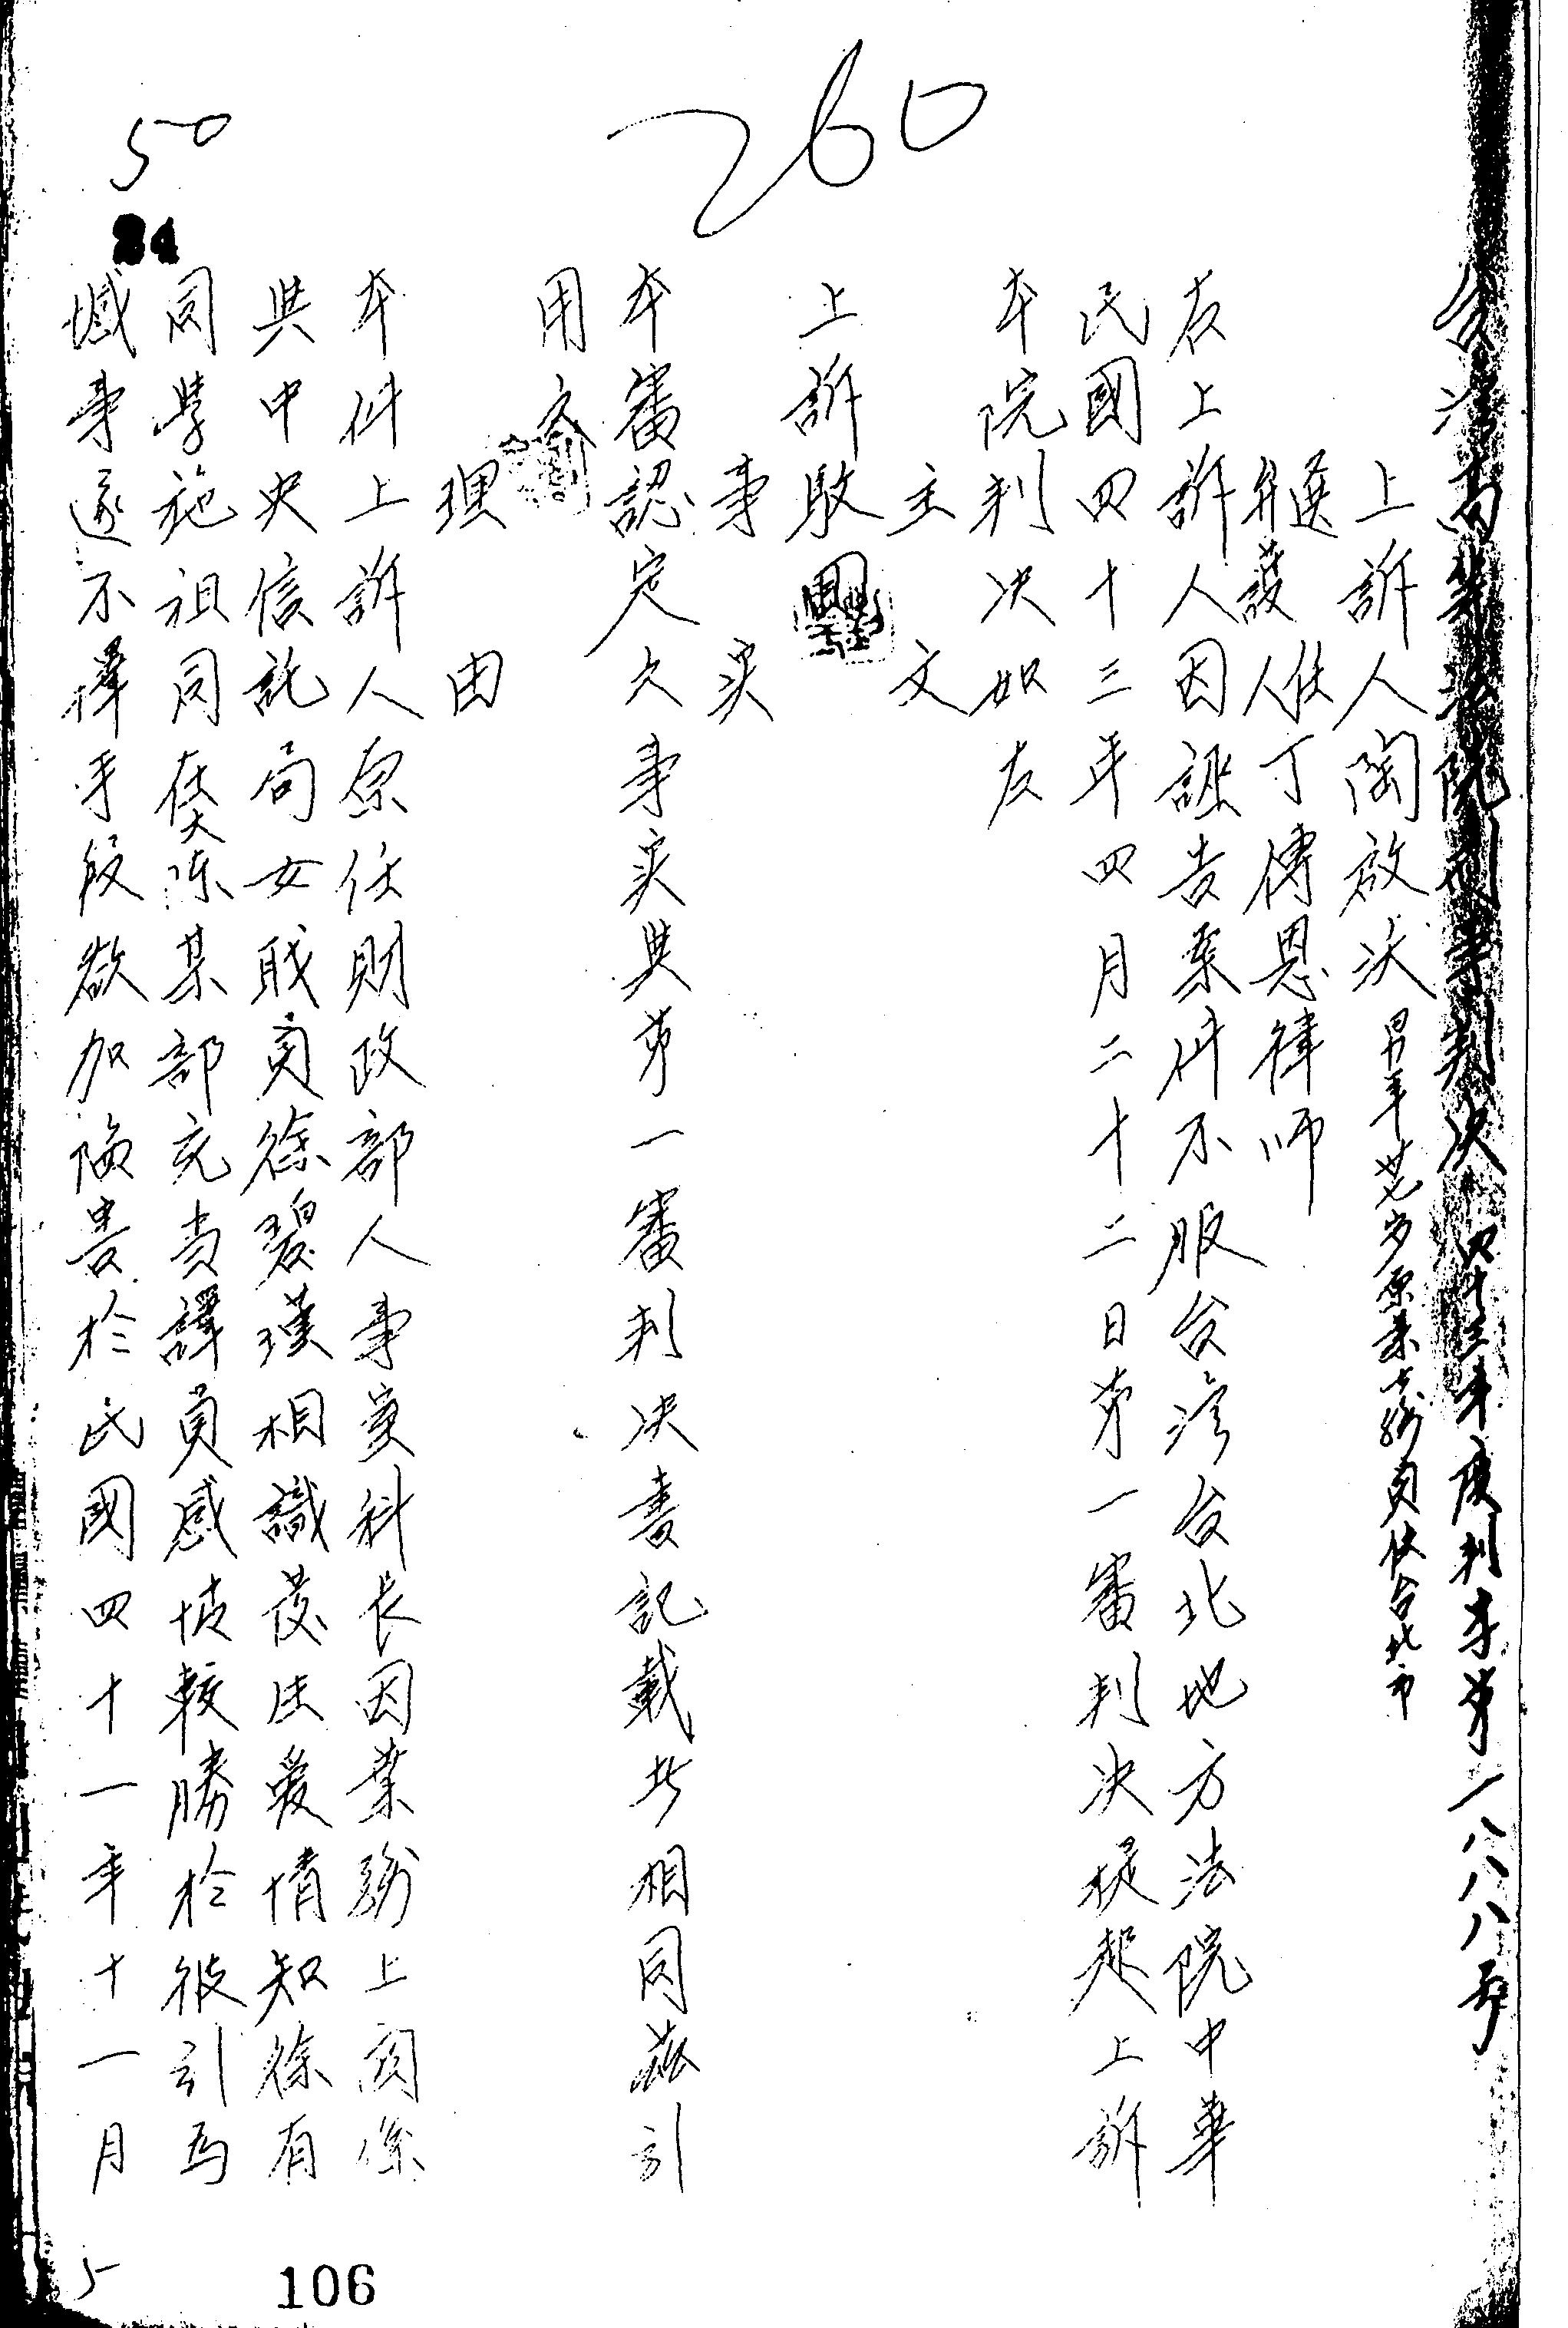 260
50
34
台灣高等法院刑事判決 四十三年度判字第一八八八號
上訴人陶啟沃 男年卅岁原業公務員住台北市
選任
弁護人丁傅恩律師
右上訴人因誣告案件不服台湾台北地方法院中華
民國四十三年四月二十二日第一審判决提起上訴
本院判决如左
主文
上訴駁回
事实
本審認定之事实與第一審判决書記載者相同茲引
用之
理由
本件上訴人原任財政部人事室科長因業務上関係
與中央信託局女职員徐碧漢相識發生愛情知徐有
同學施祖同在大陈某部充當譯員感情較勝於彼引為
憾事遂不擇手段欲加陷害於民國四十一年十一月
5
106